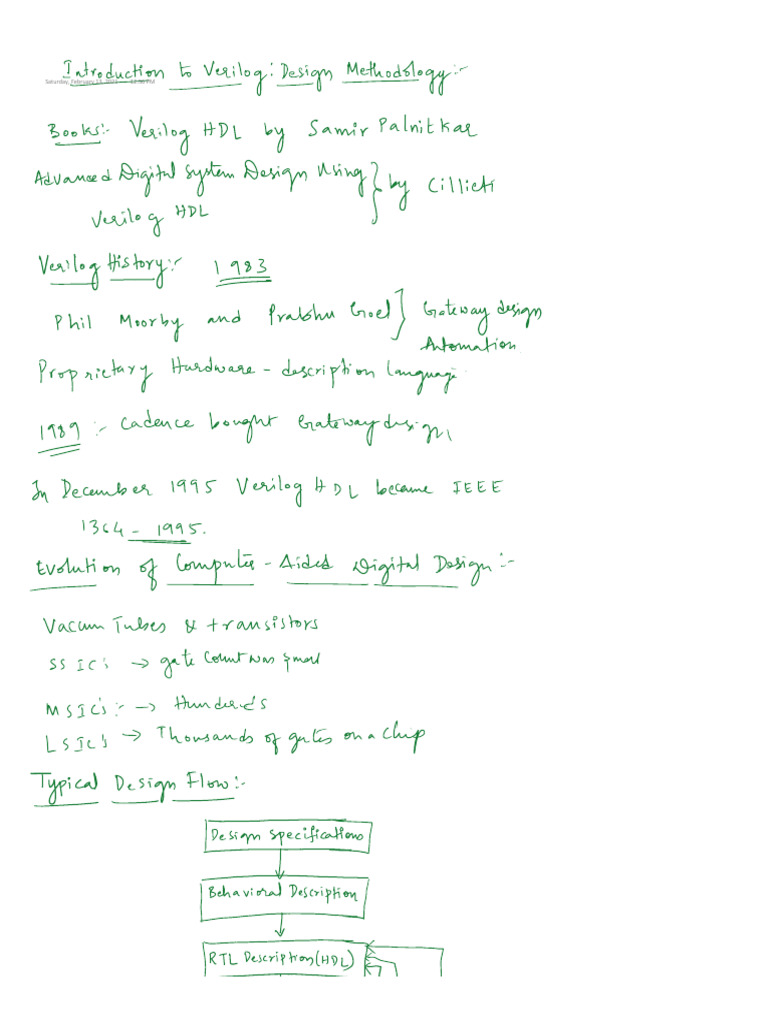 Introduction to Verilog: Design Methodology:-
Books:- Verilog HDL by Samir Palnitkar
Advanced Digital System Design Using } by Cilleti
Verilog HDL
Verilog History:- 1983
Phil Moorby and Prabhu Goel } Gateway design
Automation
Proprietary Hardware - description language
1989 :- Cadence bought Gateway design,
In December 1995 Verilog HDL became IEEE
1364 - 1995.
Evolution of Computer - Aided Digital Design:-
Vacum Tubes & transistors
SS IC's → gate Count was small
MSIC's :- → Hundereds
LSIC's → Thousands of gates on a Chip
Typical Design Flow:-
Design Specifications
Behavioral Description
RTL Description (HDL)